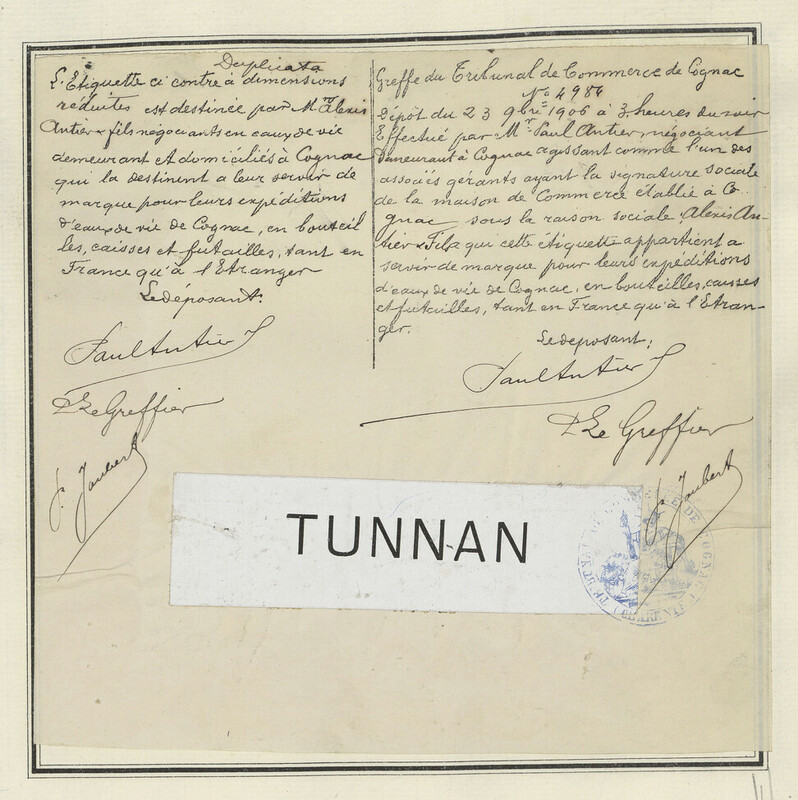 Duplicata
L'Etiquette ci contre à dimensions
réduites est destinée par Mr Alexis
Antier & fils négociants en eaux de vie
demeurant et domiciliés à Cognac
qui la destinent a leur servir de
marque pour leurs expéditions
d'eaux de vie de Cognac, en bouteil
les, caisses et futailles, tant en
France qu'à l'Etranger
Le déposant:
Paul Antier
Le Greffier
Joubert
Greffe du Tribunal de Commerce de Cognac
No 4984
Dépôt du 23 9bre 1906 à 3 heures du soir
Effectué par Mr Paul Antier, négociant
demeurant à Cognac agissant comme l'un des
associés gérants ayant la signature sociale
de la maison de Commerce établie à Co
gnac sous la raison sociale Alexis An-
tier & Fils que cette étiquette appartient a
servir de marque pour leurs expéditions
d'eaux de vie de Cognac, en bouteilles, caisses
et futailles, tant en France qu'à l'Etran-
ger.
Le déposant,
Paul Antier
Le Greffier
Joubert
TUNNAN